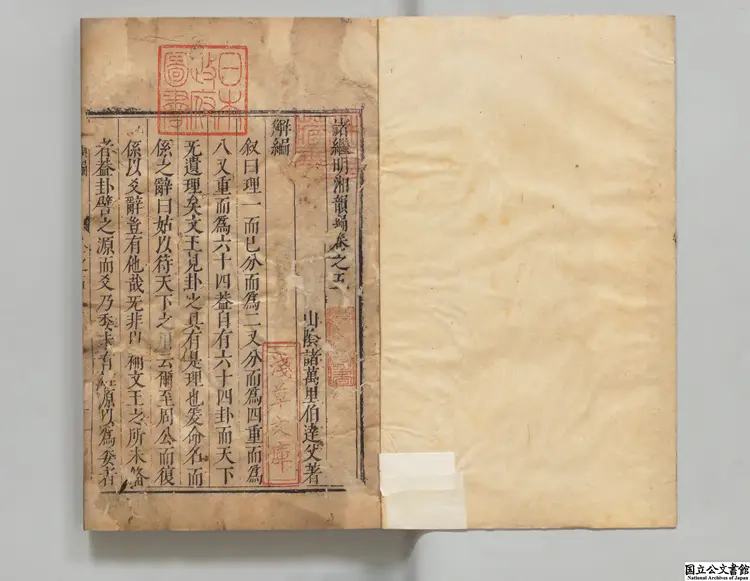 諸繼明湘韻卷之五
山陰諸萬里伯達父著
觧編
叙曰理一而已分而為二又分而為四重而為
八又重而為六十四葢自有六十四卦而天下
无遺理矣文王見卦之具有是理也爰命名而
係之辭曰姑以待天下之用云爾至周公而復
係以爻辭豈有他哉无非以補文王之所未备
者葢卦譬之源而爻乃委未有源以為委者
日本
政府
圖書
淺草文庫
国立公文書館
National Archives of Japan